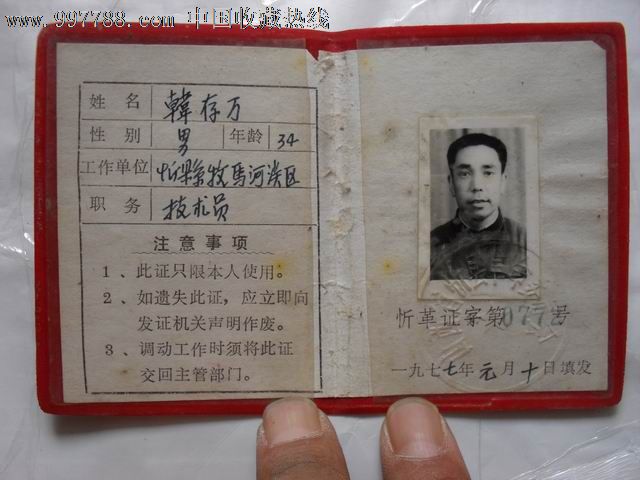 www.997788.com 中国收藏热线
姓名 韓存万
性别 男 年龄 34
工作单位 忻县牧馬河灌区
职务 技术员
注意事项
1、此证只限本人使用。
2、如遗失此证，应立即向
发证机关声明作废。
3、调动工作时须将此证
交回主管部门。
忻革证字第0772号
一九七七年元月十日填发